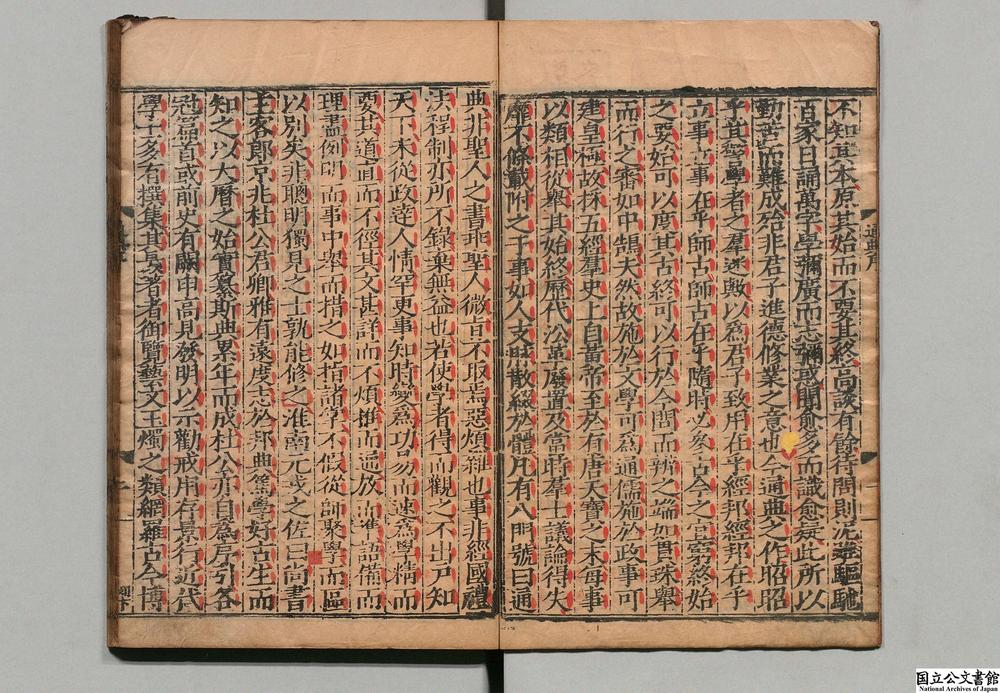 不知其本原其始而不要其終高談有餘待問則泥雖驅馳
百家日誦萬字學彌廣而志彌惑聞愈多而識愈疑此所以
勤苦而難成殆非君子進德修業之意也今通典之作昭昭
乎其警學者之羣迷歟以爲君子致用在乎經邦經邦在乎
立事立事在乎師古師古在乎隨時必參古今之宜窮終始
之要始可以度其古終可以行於今問而辨之端如貫珠舉
而行之審如中鵠夫然故施於文學可爲通儒施於政事可
建皇極故採五經羣史上自黃帝至於有唐天寶之末每事
以類相從舉其始終歷代沿革廢置及當時羣士議論得失
靡不條載附之于事如人支脈散綴於體凡有八門號曰通
典非聖人之書乖聖人微旨不取焉惡煩雜也事非經國禮
法程制亦所不錄棄無益也若使學者得而觀之不出戶知
天下未從政達人情罕更事知時變爲功易而速爲學精而
要其道直而不徑其文甚詳而不煩推而通放而準語備而
理盡例明而事中舉而措之如指諸掌不假從師聚學而區
以別矣非聰明獨見之士孰能修之淮南元戎之佐曰尚書
主客郎京兆杜公君卿雅有遠度志於邦典篤學好古生而
知之以大曆之始實纂斯典累年而成杜公亦自爲序引各
冠篇首或前史有闕申高見發明以示勸戒用存景行近代
學士多有撰集其最著者御覽藝文玉燭之類網羅古今博
通典序
国立公文書館
National Archives of Japan